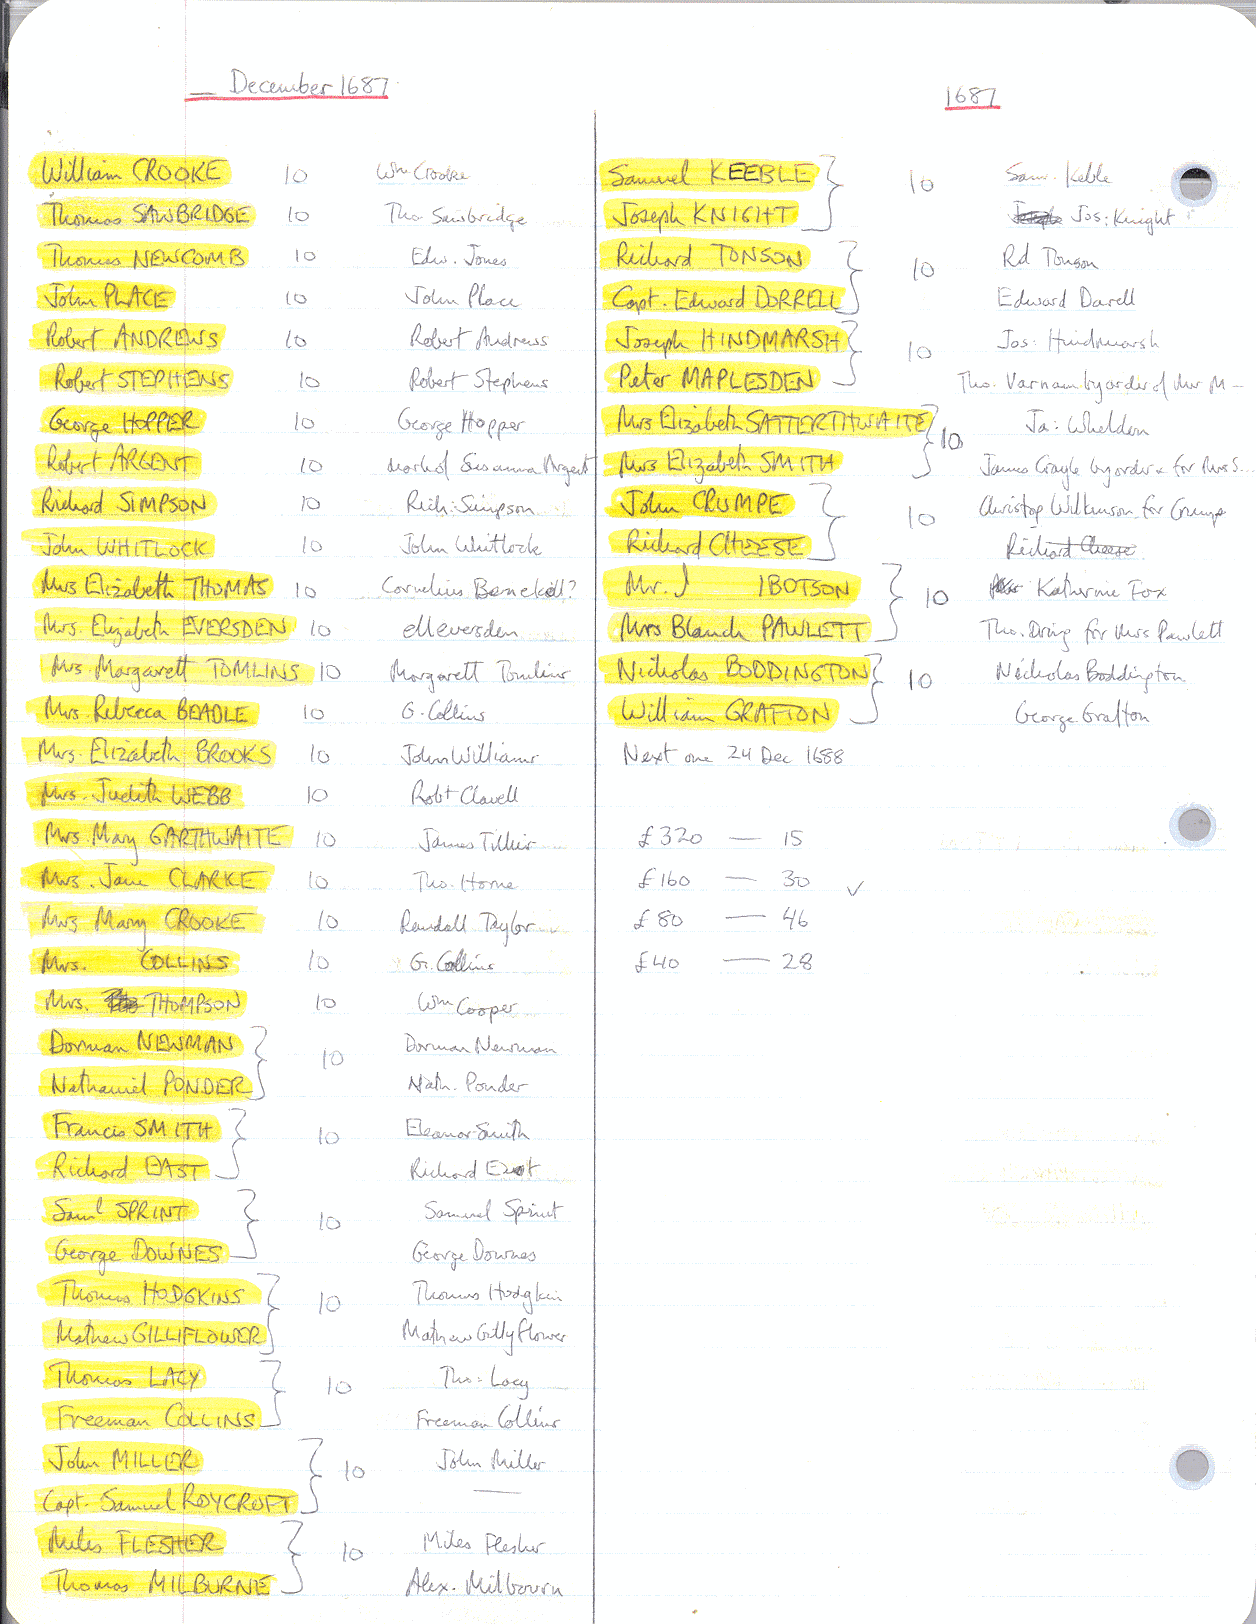 — December 1687
William CROOKE 10 Wm Crooke
Thomas SAWBRIDGE 10 Tho. Sawbridge
Thomas NEWCOMB 10 Edw. Jones
John PLACE 10 John Place
Robert ANDREWS 10 Robert Andrews
Robert STEPHENS 10 Robert Stephens
George HOPPER 10 George Hopper
Robert ARGENT 10 mark of Susanna Argent
Richard SIMPSON 10 Rich: Simpson
John WHITLOCK 10 John Whitlock
Mrs Elizabeth THOMAS 10 Cornelius ?
Mrs. Elizabeth EVERSDEN 10 ell eversden
Mrs Margarett TOMLINS 10 Margarett Tomlins
Mrs. Rebecca BEADLE 10 G. Collins
Mrs. Elizabeth BROOKS 10 John Williams
Mrs. Judith WEBB 10 Robt Clavell
Mrs. Mary GARTHWAITE 10 James Tillier
Mrs. Jane CLARKE 10 Tho. Horne
Mrs Mary CROOKE 10 Randall Taylor
Mrs. COLLINS 10 G. Collins
Mrs. THOMPSON 10 Wm Cooper
Dorman NEWMAN } 10 Dorman Newman
Nathaniel PONDER Nath. Ponder
Francis SMITH } 10 Eleanor Smith
Richard EAST Richard East
Saml SPRINT } 10 Samuel Sprint
George DOWNES George Downes
Thomas HODGKINS } 10 Thomas Hodgkin
Mathew GILLIFLOWER Mathew Gillyflower
Thomas LACY } 10 Tho: Lacy
Freeman COLLINS Freeman Collins
John MILLER } 10 John Miller
Capt. Samuel ROYCROFT —
Miles FLESHER } 10 Miles Flesher
Thomas MILBURNE Alex. Milbourn
1687
Samuel KEEBLE } 10 Sam. Keble
Joseph KNIGHT Jos: Knight
Richard TONSON } 10 Rd Tonson
Capt. Edward DORRELL Edward Darell
Joseph HINDMARSH } 10 Jos: Hindmarsh
Peter MAPLESDEN Tho. Varnam by order of Mr M—
Mrs Elizabeth SATTERTHWAITE } 10 Ja: Wheldon
Mrs Elizabeth SMITH James by order & for Mrs S...
John CRUMPE } 10 Christop Wilkinson for Crump
Richard CHEESE Richard Cheese
Mr. J IBOTSON } 10 Katherine Fox
Mrs Blanch PAWLETT Tho. Dring for Mrs Pawlett
Nicholas BODDINGTON } 10 Nicholas Boddington
William GRAFTON George Grafton
Next one 24 Dec 1688
£320 — 15
£160 — 30 ✓
£80 — 46
£40 — 28